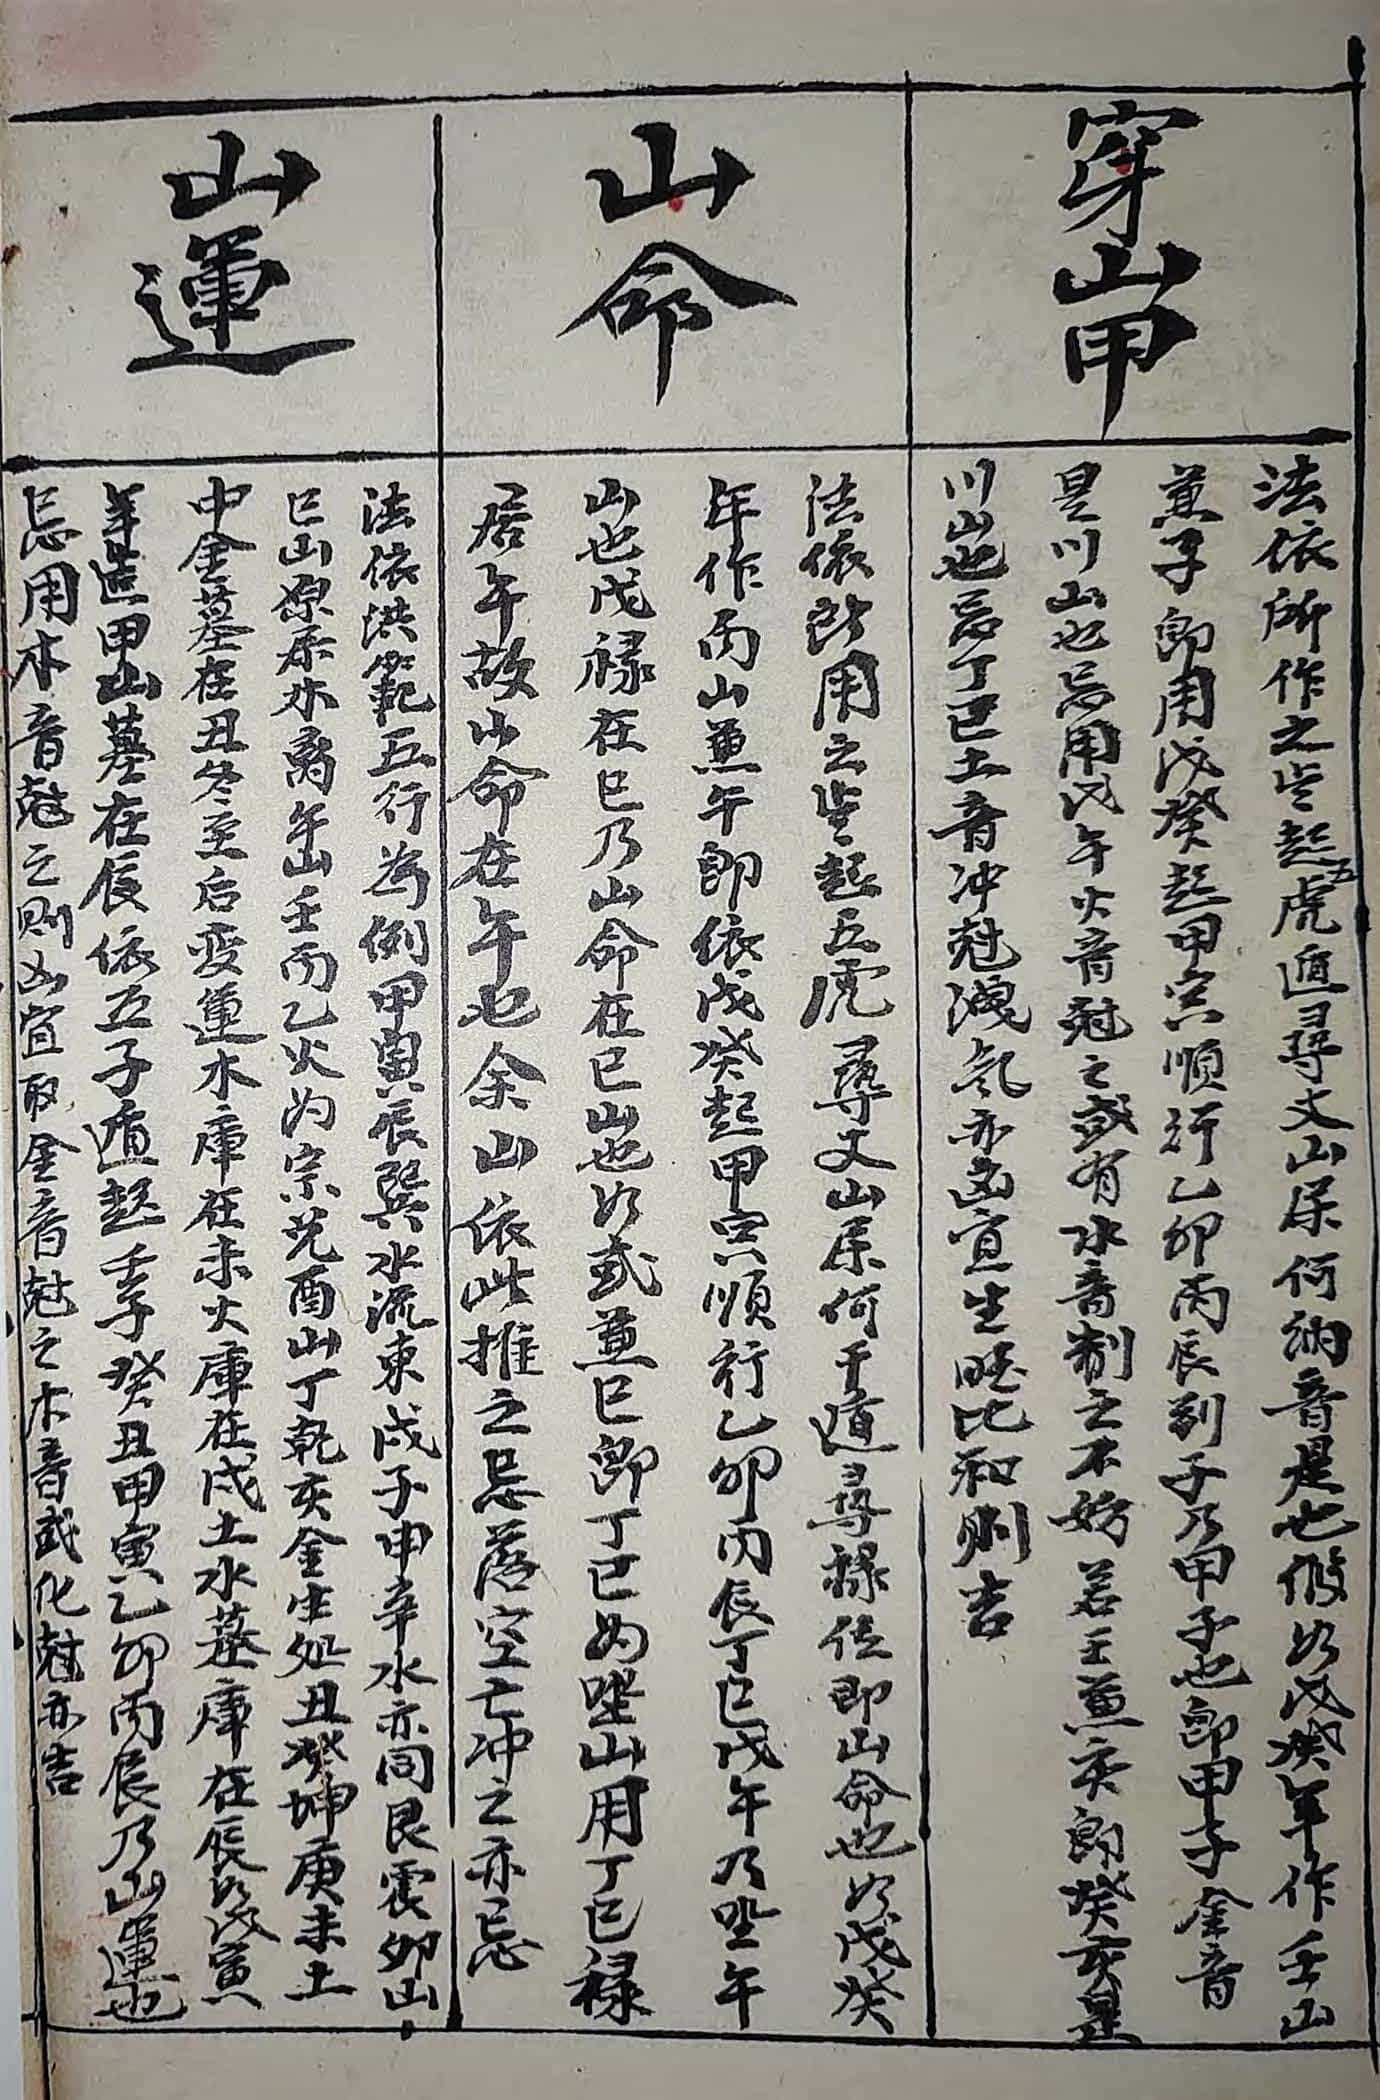 穿山甲
法依所作之岁起五虎遁尋丈山屬何納音是也假如戊癸年作壬山
兼子即用戊癸起甲寅順行乙卯丙辰到子乃甲子也即甲子金音
是川山也忌用戊午火音尅之或有水音制之不妨若壬兼亥即癸亥是
川山也忌丁巳土音冲尅洩气亦凶宜生旺比和則吉
山命
法依所用之岁起五虎尋丈山屬何干遁尋祿位即山命也如戊癸
年作丙山兼午即依戊癸起甲寅順行乙卯丙辰丁巳戊午乃坐午
山也戊祿在巳乃山命在巳山也如式兼巳即丁巳为坐山用丁巳祿
居午故山命在午也余山依此推之忌落空亡冲之亦忌
山運
法依洪範五行為例甲寅辰巽水流東戌子申辛水亦同艮震卯山
巳山原屬木离午山壬丙乙火为宗兑酉山丁乾亥金生处丑癸坤庚未土
中金墓在丑冬至后变運木庫在未火庫在戌土水墓庫在辰如戊寅
年造甲山墓在辰依五子遁起壬子癸丑甲寅乙卯丙辰乃山運也
忌用木音尅之則凶宜取金音尅之木音或化尅亦吉